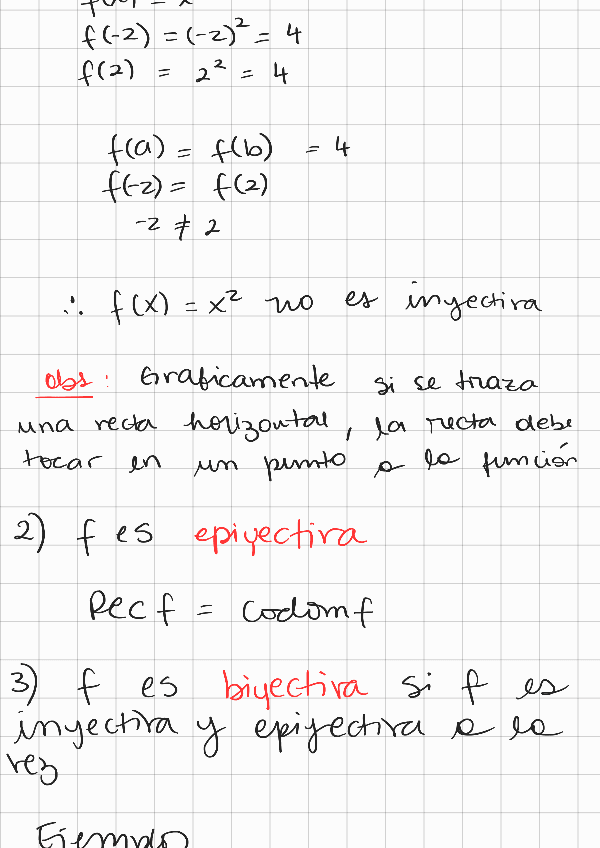 f(x) = x
f(-2) = (-2)² = 4
f(2) = 2² = 4
f(a) = f(b) = 4
f(-2) = f(2)
-2 ≠ 2
∴ f(x) = x² no es inyectiva
obs: Graficamente si se traza
una recta horizontal, la recta debe
tocar en un punto a la función
2) f es epiyectiva
Rec f = Codom f
3) f es biyectiva si f es
inyectiva y epiyectiva a la
vez
Ejemplo